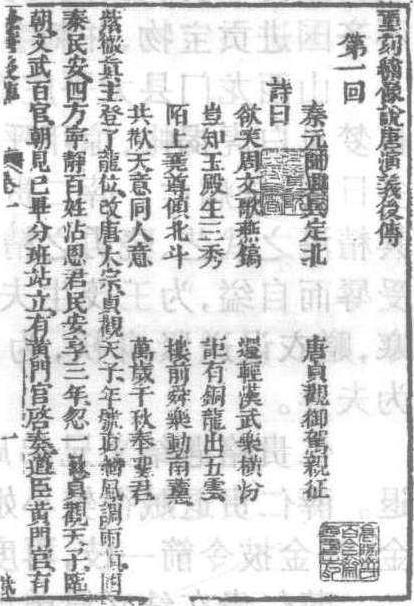 重刻繡像說唐演義後傳
第一回
秦元帥興兵定北 唐貞觀御駕親征
詩曰
欲笑周文歌燕鎬 還輕漢武樂橫汾
豈知玉殿生三秀 詎有銅龍出五雲
陌上堯尊傾北斗 樓前舜樂動南薰
共歡天意同人意 萬歲千秋奉聖君
紫微真主登了龍位改唐太宗貞觀天子年號 風調雨順國
泰民安四方寧靜百姓沾恩君民安享三年忽一日貞觀天子臨
朝文武百官朝見已畢分班站立有黃門官啓奏道臣黃門官有
卷一 一